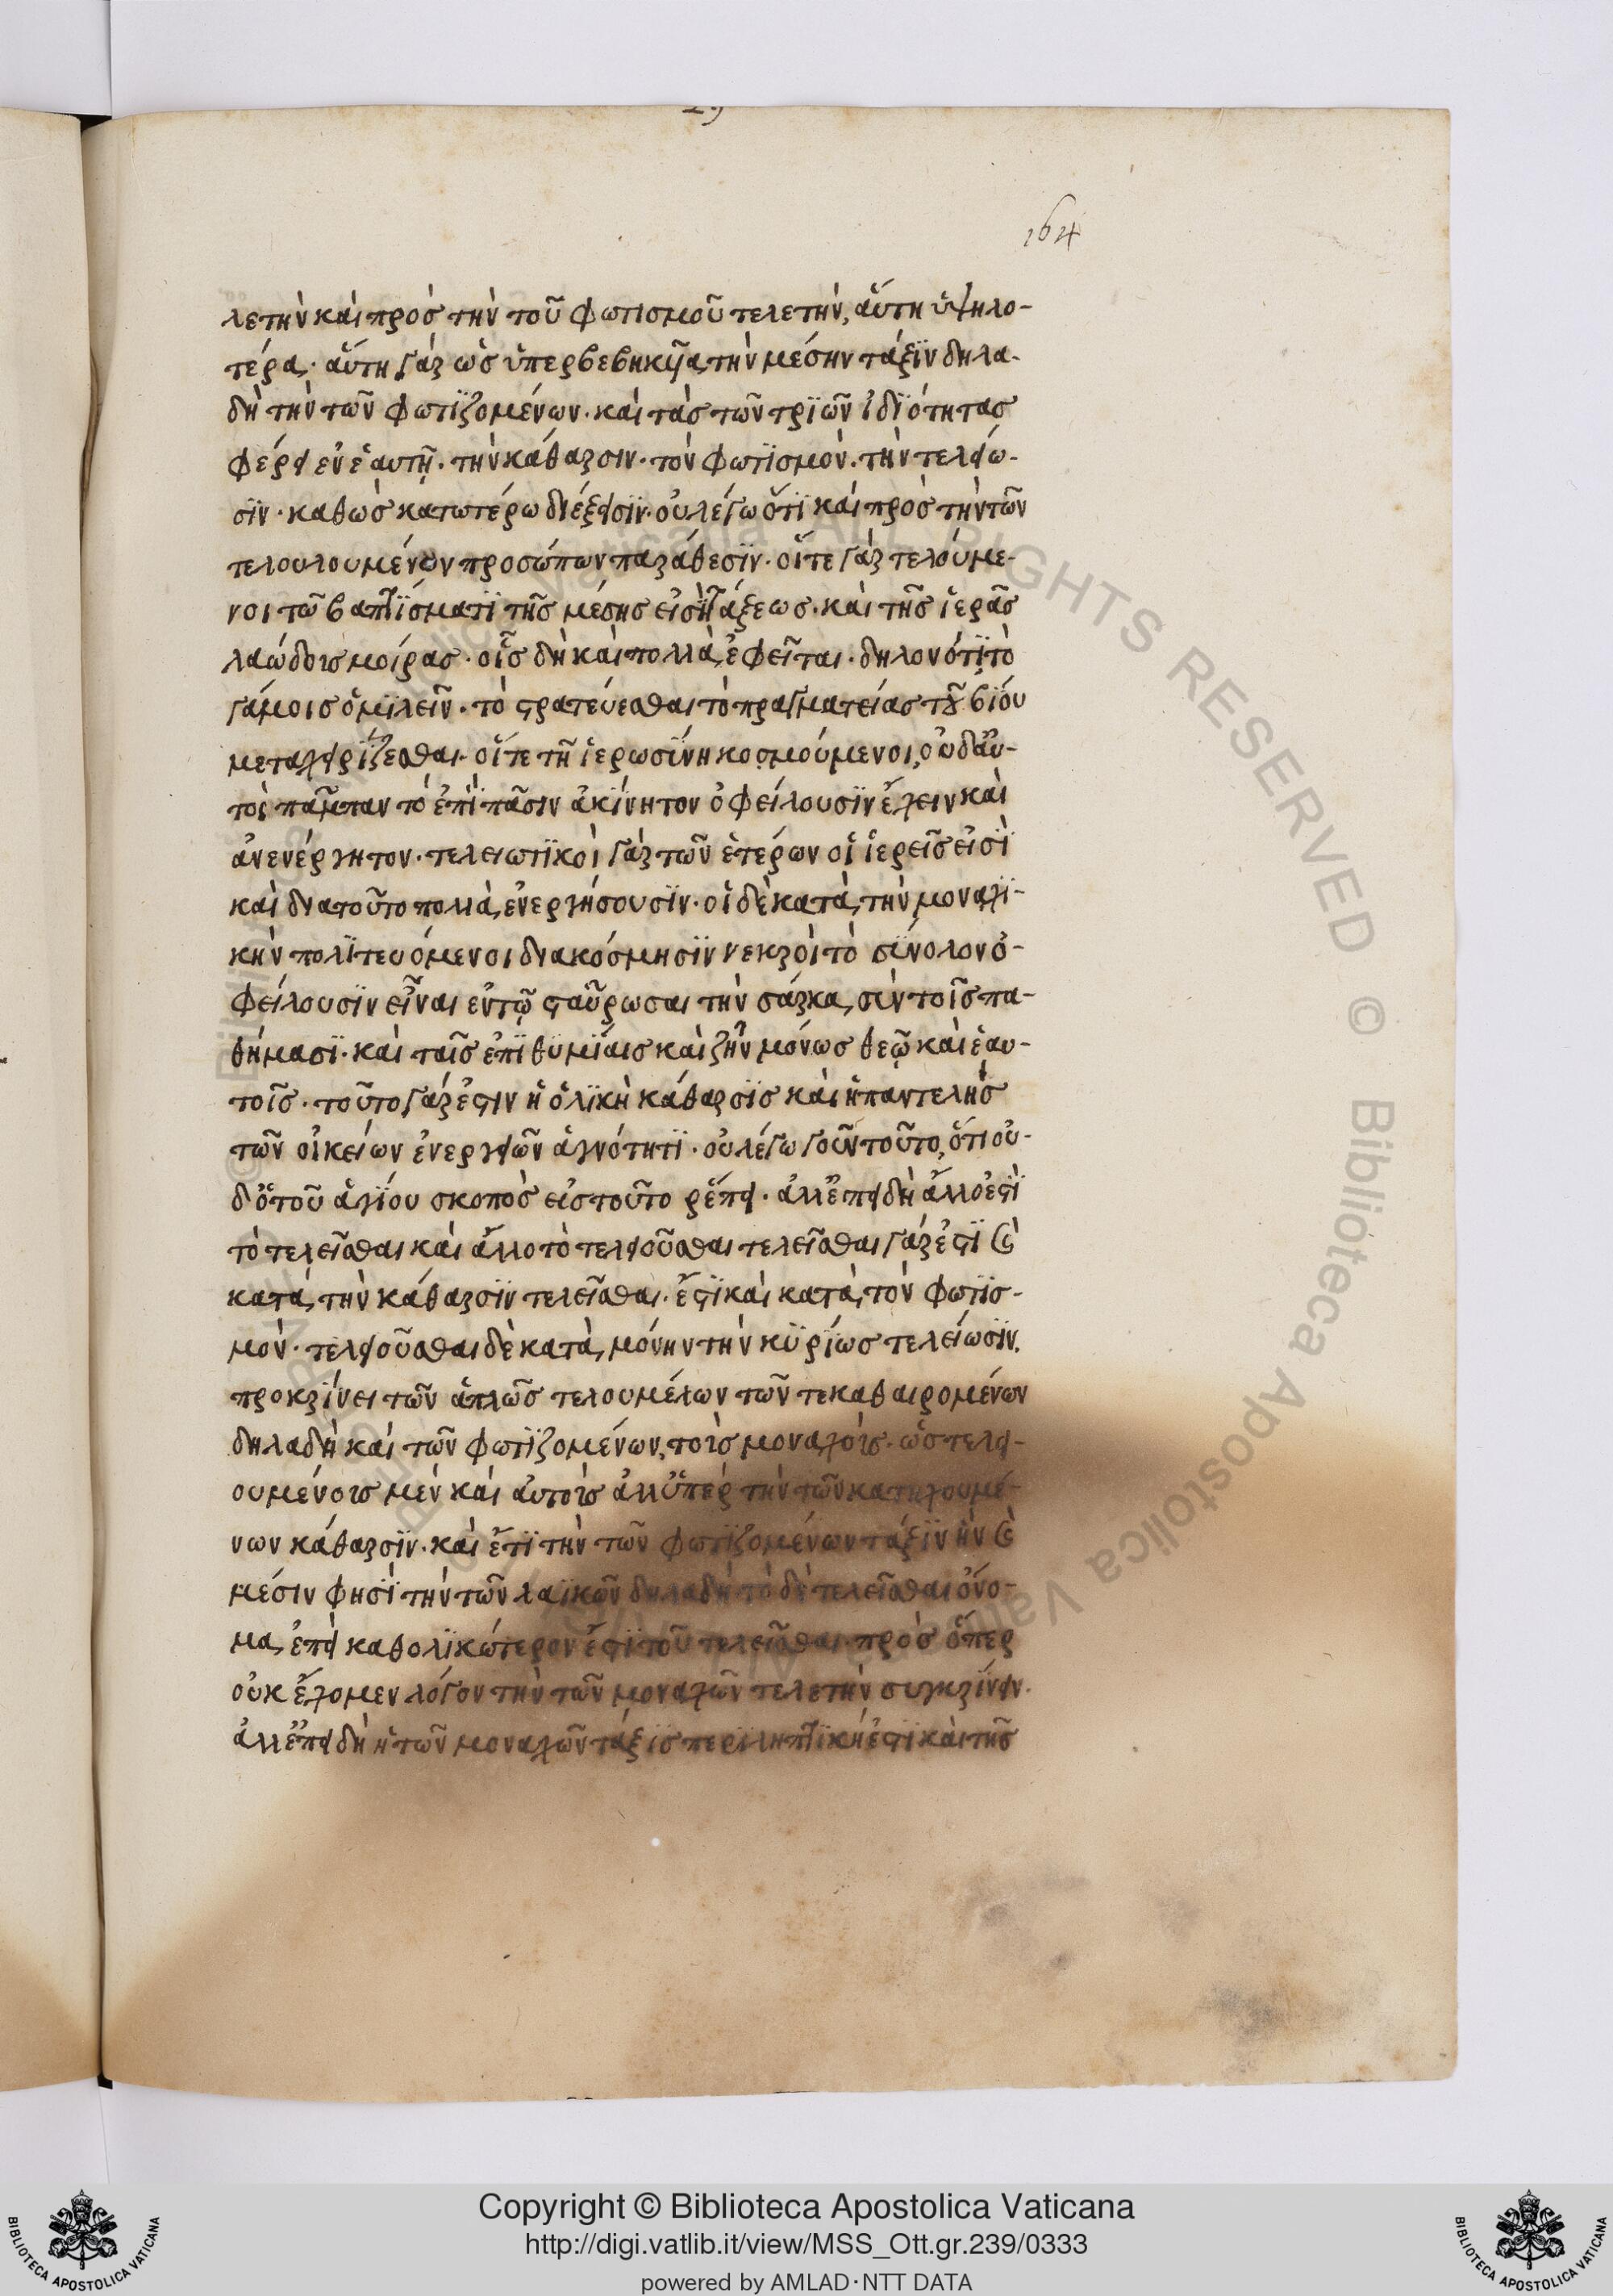 164
λετὴν καὶ πρὸς τὴν τοῦ φωτισμοῦ τελετήν, αὕτη ὑψηλο-
τέρα· αὕτη γὰρ ὡς ὑπερβεβηκῦα τὴν μέσην τάξϊν δηλα-
δὴ τὴν τῶν φωτϊζομένων· καὶ τὰς τῶν τρϊῶν ἰδϊότητας
φέρει ἐν ἑαυτῆ· τὴν κάθαρσιν· τὸν φωτϊσμὸν· τὴν τελείω-
σϊν· καθὼς κατωτέρω διέξεισϊν· οὐ λέγω ὅτϊ καὶ πρὸς τὴν τῶν
τελουλουμένων προσώπων παράθεσϊν· οἵ τε γὰρ τελούμε-
νοι τῶ βαπτϊσματϊ τῆς μέσης εἰσῒ τάξεως· καὶ τῆς ἱερᾶς
λαώδοις μοίρας· οἷς δὴ καὶ πολλὰ ἐφεῖται· δηλονότϊ τὸ
γάμοις ὁμϊλεῖν· τὸ στρατεύεσθαι τὸ πραγματείας τοῦ βϊόυ
μεταχειρϊζεσθαι· οἵ τε τῆ ἱερωσΰνη κοσμούμενοι, οὐδ' αὐ-
τοὶ πάμπαν τὸ ἐπῒ πᾶσιν ἀκϊνητον ὀφείλουσϊν ἔχειν καὶ
ἀνενέργητον· τελειωτϊκοὶ γὰρ τῶν ἑτέρων οἱ ἱερεῖς εἰσῒ
καὶ διατοῦτο πολλὰ ἐνεργήσουσϊν· οἱ δὲ κατὰ τὴν μοναχϊ-
κὴν πολϊτευόμενοι διακόσμησϊν νεκροὶ τὸ σΰνολον ὀ-
φείλουσϊν εἶναι ἐν τῷ σταῦρωσαι τὴν σάρκα σὺν τοῖς πα-
θήμασϊ· καὶ ταῖς ἐπϊθυμϊαις καὶ ζῆν μόνως θεῷ καὶ ἑαυ-
τοῖς· τοῦτο γὰρ ἐστιν ἡ ὁλϊκὴ κάθαρσϊς καὶ ἡ παντελὴς
τῶν οἰκείων ἐνεργειῶν ἁγνότητϊ· οὐ λέγω γοῦν τοῦτο, ὅτι οὐ-
δ' ὁ τοῦ ἁγϊου σκοπὸς εἰς τοῦτο ρέπει· ἀλλ' ἐπειδὴ ἄλλο ἐστῒ
τὸ τελεῖσθαι καὶ ἄλλο τὸ τελειοῦσθαι τελεῖσθαι γὰρ ἐστϊ καὶ
κατὰ τὴν κάθαρσϊν τελεῖσθαι· ἔστϊ καὶ κατὰ τὸν φωτϊσ-
μὸν· τελειοῦσθαι δὲ κατὰ μόνην τὴν κϋρϊως τελείωσϊν,
προκρϊνει τῶν ἁπλῶς τελουμέλων τῶν τε καθαιρομένων
δηλαδὴ καὶ τῶν φωτϊζομένων, τοῖς μοναχοῖς· ὡς τελει-
ουμένοις μὲν καὶ αὐτοῖς ἀλλ' ὑπὲρ τὴν τῶν κατηχουμέ-
νων κάθαρσϊν· καὶ ἔτϊ τὴν τῶν φωτϊζομένων τάξϊν ἣν καὶ
μέσιν φησῒ τὴν τῶν λαϊκῶν δηλαδὴ τὸ δὲ τελεῖσθαι ὄνο-
μα, ἐπεὶ καθολϊκώτερον ἐστϊ τοῦ τελεῖσθαι· πρὸς ὅπερ
οὐκ ἔχομεν λόγον τὴν τῶν μοναχῶν τελετὴν συγκρϊνειν·
ἀλλ' ἐπειδὴ ἡ τῶν μοναχῶν τάξϊς περϊληπτϊκὴ ἐστϊ καὶ τῆς
Copyright © Biblioteca Apostolica Vaticana
http://digi.vatlib.it/view/MSS_Ott.gr.239/0333
powered by AMLAD·NTT DATA